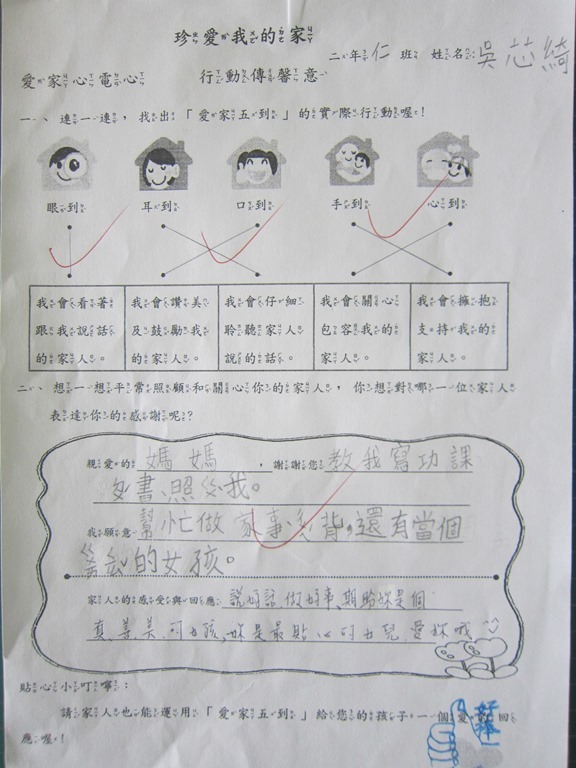 珍愛我的家
二年仁班 姓名:吳芯綺
愛家心電心 行動傳馨意
一、連一連,找出「愛家五到」的實際行動喔!
眼到 耳到 口到 手到 心到
我會看著跟我說話的家人。
我會讚美及鼓勵我的家人。
我會仔細聆聽家人說的話。
我會關心包容我的家人。
我會擁抱支持我的家人。
二、想一想平常照顧和關心你的家人,你想對哪一位家人
表達你的感謝呢?
親愛的媽媽,謝謝您教我寫功課
書、照我。
我願意幫忙做家事背,還有當個
的女孩。
家人的感受與回應 說好話、做好事、期給妳是個
真、善、美、的女孩,妳是最貼心的女兒,愛妳哦
貼心小叮嚀:
請家人也能運用「愛家五到」給您的孩子一個愛的回
應喔!
好棒